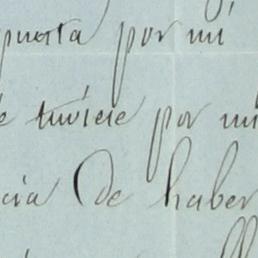 puesta por mi
e tuviese por mi
cia de haber